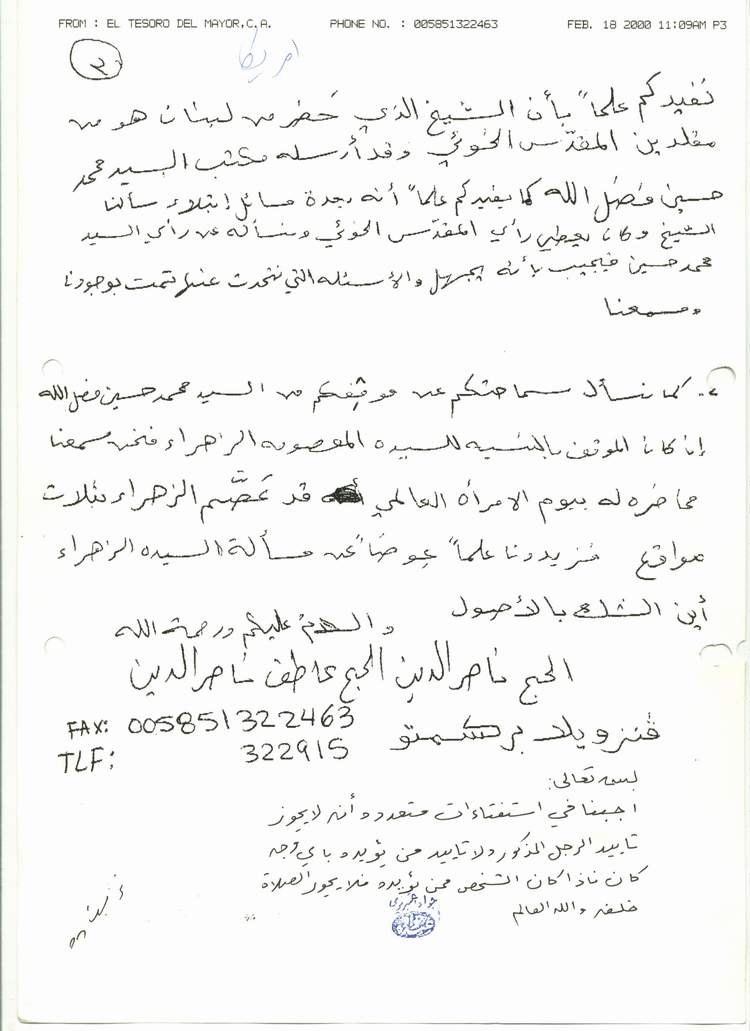 FROM : EL TESORO DEL MAYOR,C.A. PHONE NO. : 005851322463 FEB. 18 2000 11:09AM P3
٣ امريكا
نفيدكم علماً بأن الشيخ الذي حَضر من لبنان هو من
مقلدين المقدّس الخوئي وقد أرسله مكتب السيد محمد
حسين فضل الله كما يفيدكم علماً أنه بعدة مسائل إبتلاء سألنا
الشيخ وكان يعطي رأي المقدّس الخوئي ونسأله عن رأي السيد
محمد حسين فيجيب بأنه يجهل والأسئله التي نتحدث عنها تمت بوجودنا
ومسمعنا
كما نسأل سماحتكم عن موقفكم من السيد محمد حسين فضل الله
إن كان الموقف بالنسبه للسيده المعصومه الزهراء فنحن سمعنا
محاضره له بيوم الامرأه العالمي قد عَصَّم الزهراء بثلاث
مواقع فزيدونا علماً عِوضاً عن مسألة السيده الزهراء
أين الشلع بالأصول والسلام عليكم ورحمة الله
الحج ناصر الدين الحج عاطف ناصر الدين
FAX: 005851322463
TLF: 322915
ڤنزويلا بركسمتو
بسمه تعالى:
اجبنا في استفتاءات متعدده أنه لا يجوز
تاييد الرجل المذكور ولا تاييد من يؤيده باي وجه
كان فاذا كان الشخص ممن يؤيده فلا يجوز الصلاة
خلفه والله العالم